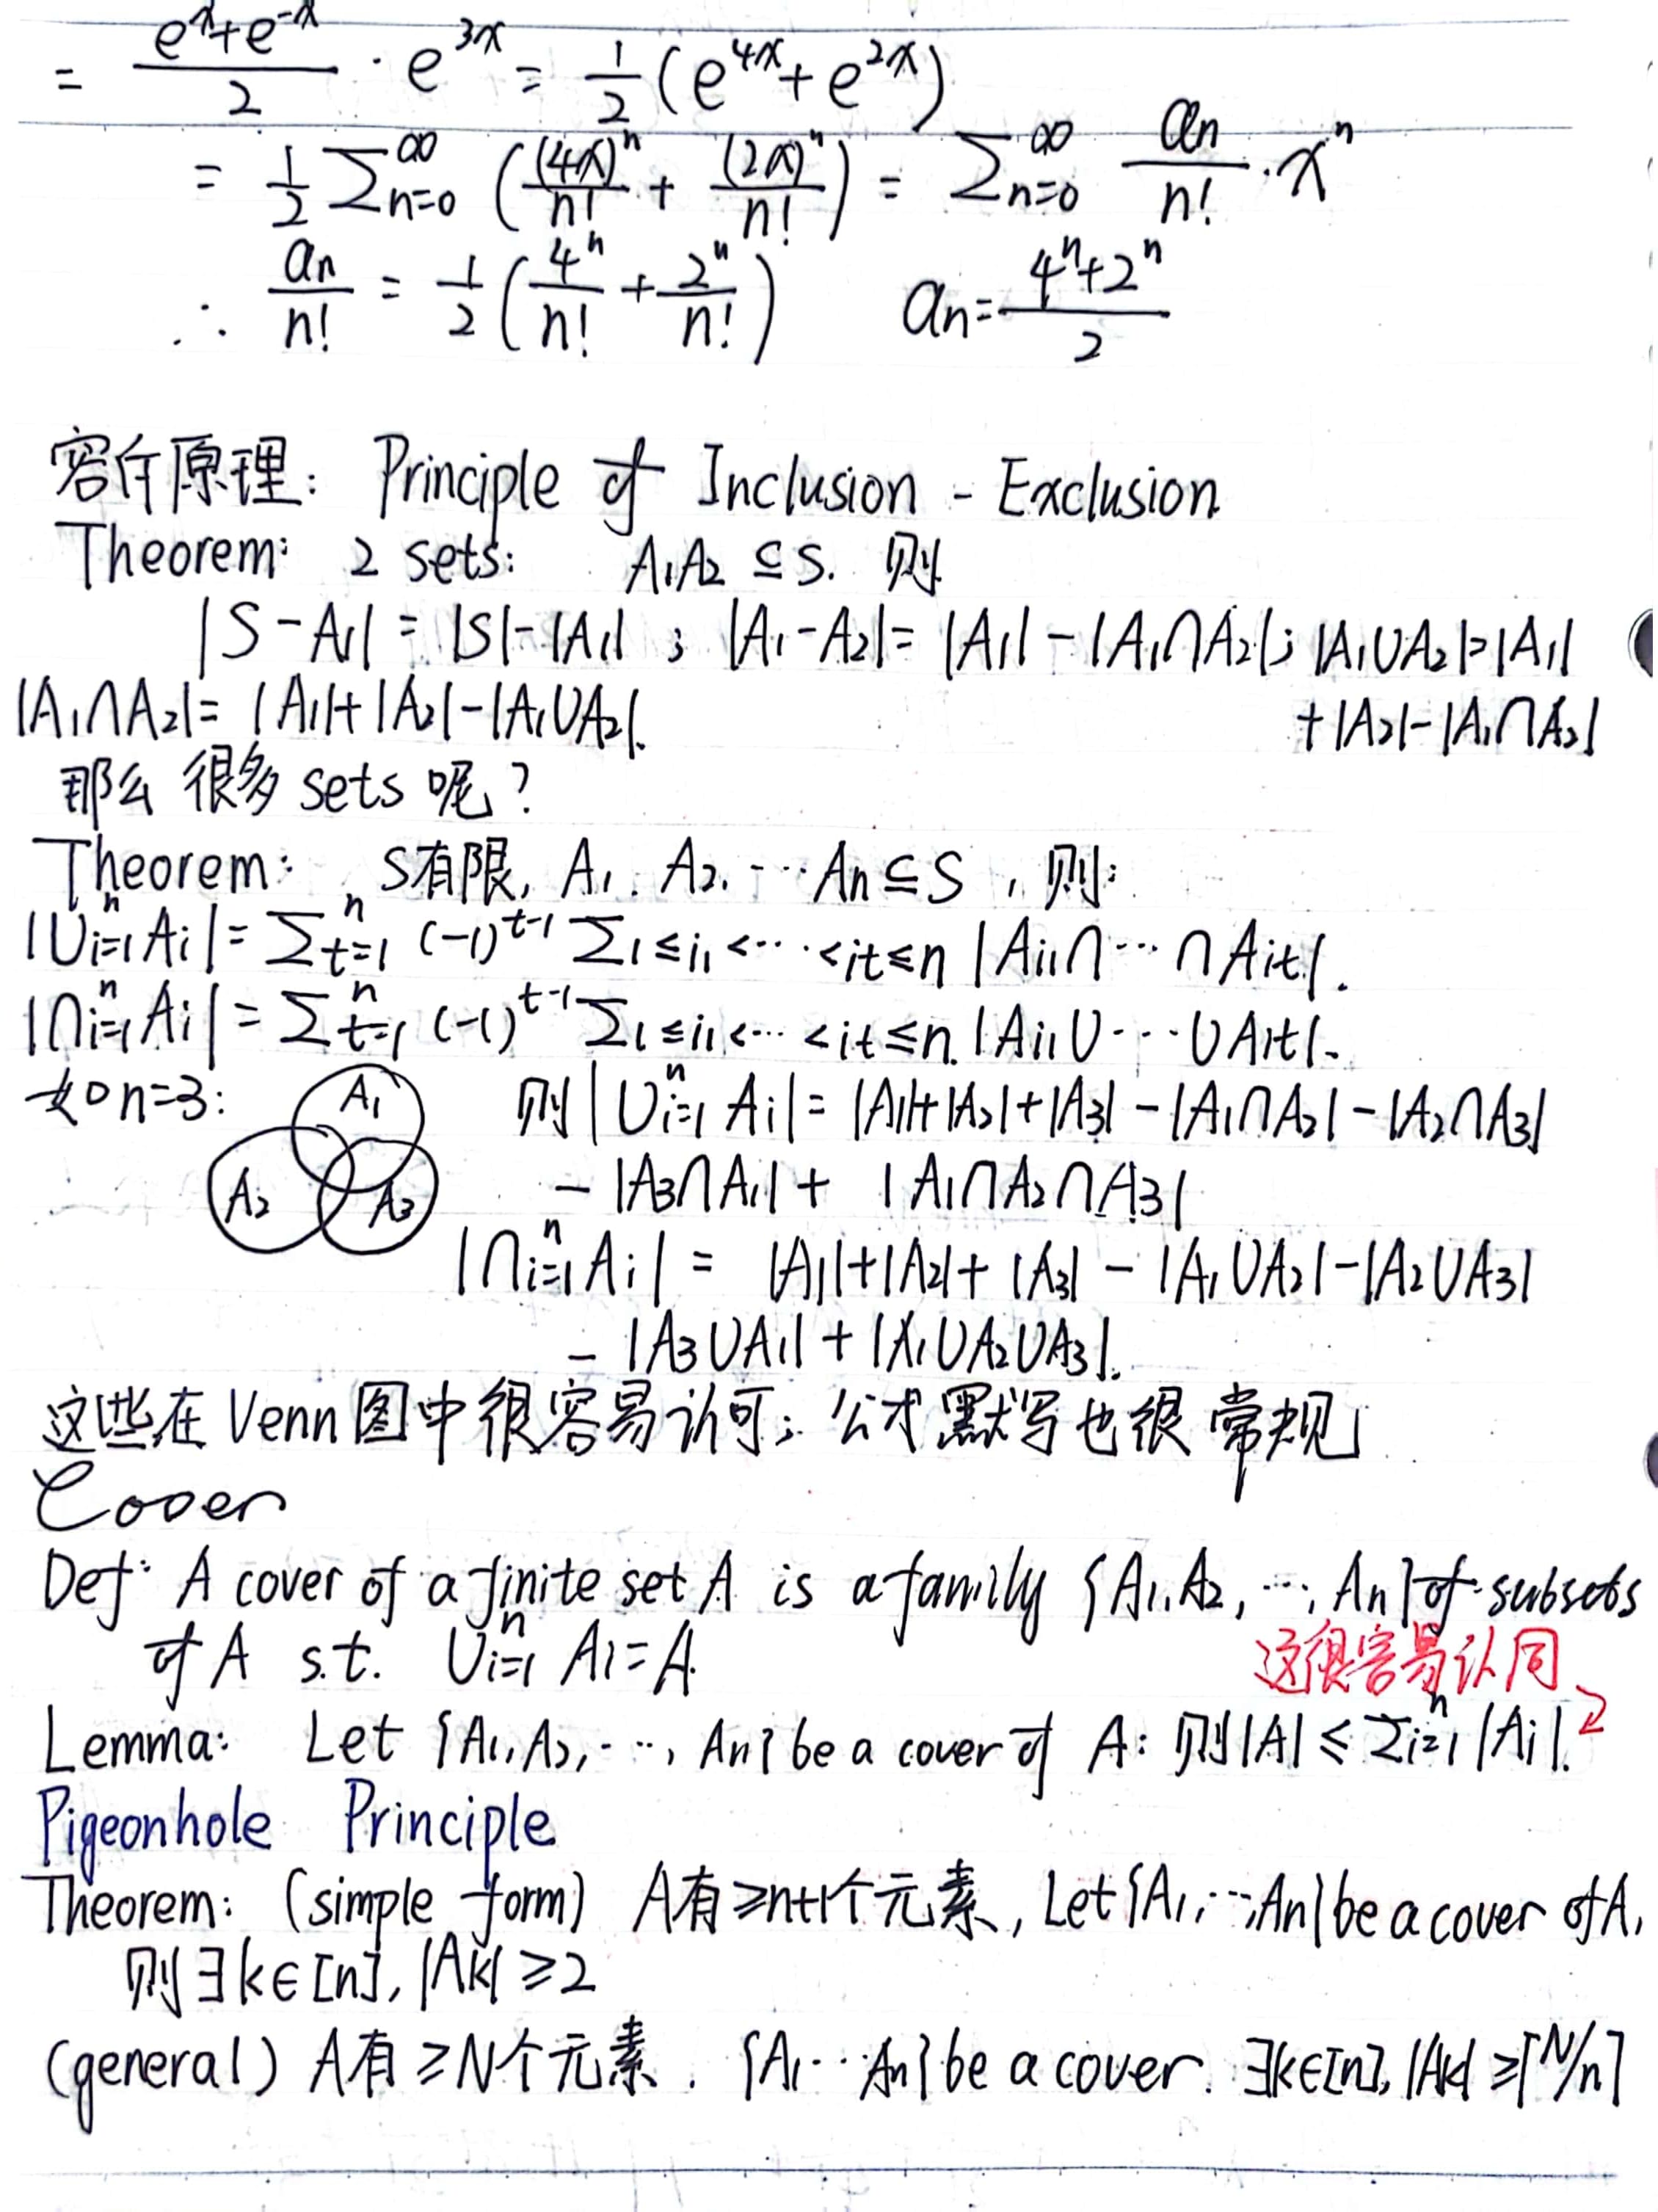 = (e^x+e^{-x})/2 · e^{3x} = 1/2 (e^{4x} + e^{2x})
= 1/2 ∑_{n=0}^∞ ((4x)^n/n! + (2x)^n/n!) = ∑_{n=0}^∞ a_n/n! · x^n
∴ a_n/n! = 1/2 (4^n/n! + 2^n/n!)   a_n = (4^n+2^n)/2
容斥原理: Principle of Inclusion - Exclusion.
Theorem: 2 sets: A₁A₂ ⊆ S. 则
|S-A₁| = |S|-|A₁| ; |A₁-A₂| = |A₁| - |A₁∩A₂|; |A₁∪A₂|=|A₁|
+|A₂|-|A₁∩A₂|
|A₁∩A₂| = |A₁|+|A₂|-|A₁∪A₂|.
那么 很多 sets 呢?
Theorem: S有限, A₁, A₂, ⋯ An ⊆ S , 则:
|∪_{i=1}^n Ai| = ∑_{t=1}^n (-1)^{t-1} ∑_{1≤i₁<⋯<it≤n} |Ai₁∩⋯∩Ait|.
|∩_{i=1}^n Ai| = ∑_{t=1}^n (-1)^{t-1} ∑_{1≤i₁<⋯<it≤n} |Ai₁∪⋯∪Ait|.
如 n=3: A₁ A₂ A₃ 则 |∪_{i=1}^n Ai| = |A₁|+|A₂|+|A₃| - |A₁∩A₂| - |A₂∩A₃|
- |A₃∩A₁| + |A₁∩A₂∩A₃|
|∩_{i=1}^n Ai| = |A₁|+|A₂|+|A₃| - |A₁∪A₂| - |A₂∪A₃|
- |A₃∪A₁| + |A₁∪A₂∪A₃|.
这些在 Venn 图中很容易认可; 公式默写也很常规
Cover
Def: A cover of a finite set A is a family {A₁,A₂, ⋯, An} of subsets
of A s.t. ∪_{i=1}^n Ai = A.
这很容易认同
Lemma: Let {A₁,A₂, ⋯, An} be a cover of A: 则 |A| ≤ ∑_{i=1}^n |Ai|.
Pigeonhole Principle
Theorem: (simple form) A有≥n+1个元素, Let {A₁,⋯,An} be a cover of A,
则 ∃k∈[n], |Ak| ≥ 2
(general) A有 ≥N个元素. {A₁⋯An} be a cover. ∃k∈[n], |Ak| ≥⌈N/n⌉